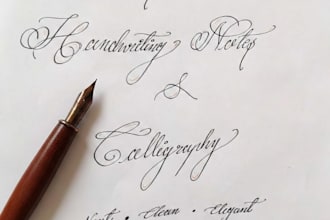 Handwriting Notes
&
Calligraphy
Neat • Clean • Elegant